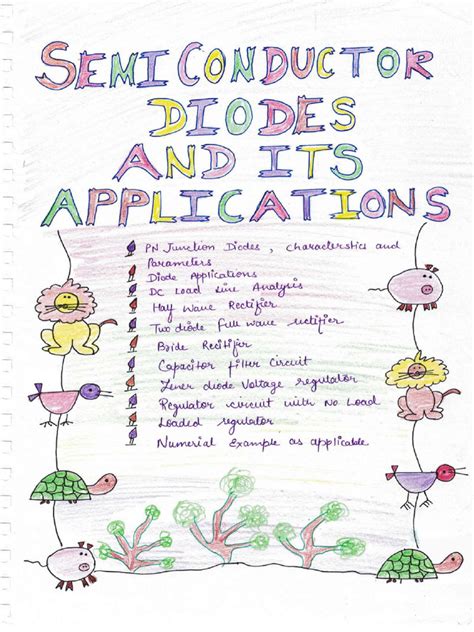 SEMICONDUCTOR
DIODES
AND ITS
APPLICATIONS
PN Junction Diodes, characterstics and
Parameters
Diode Applications
DC Load Line Analysis
Half Wave Rectifier
Two diode Full wave rectifier
Bride Rectifier
Capacitor filter Circuit
Zener diode Voltage regulator
Regulator circuit with No Load
Loaded regulator
Numerial Example as applicable